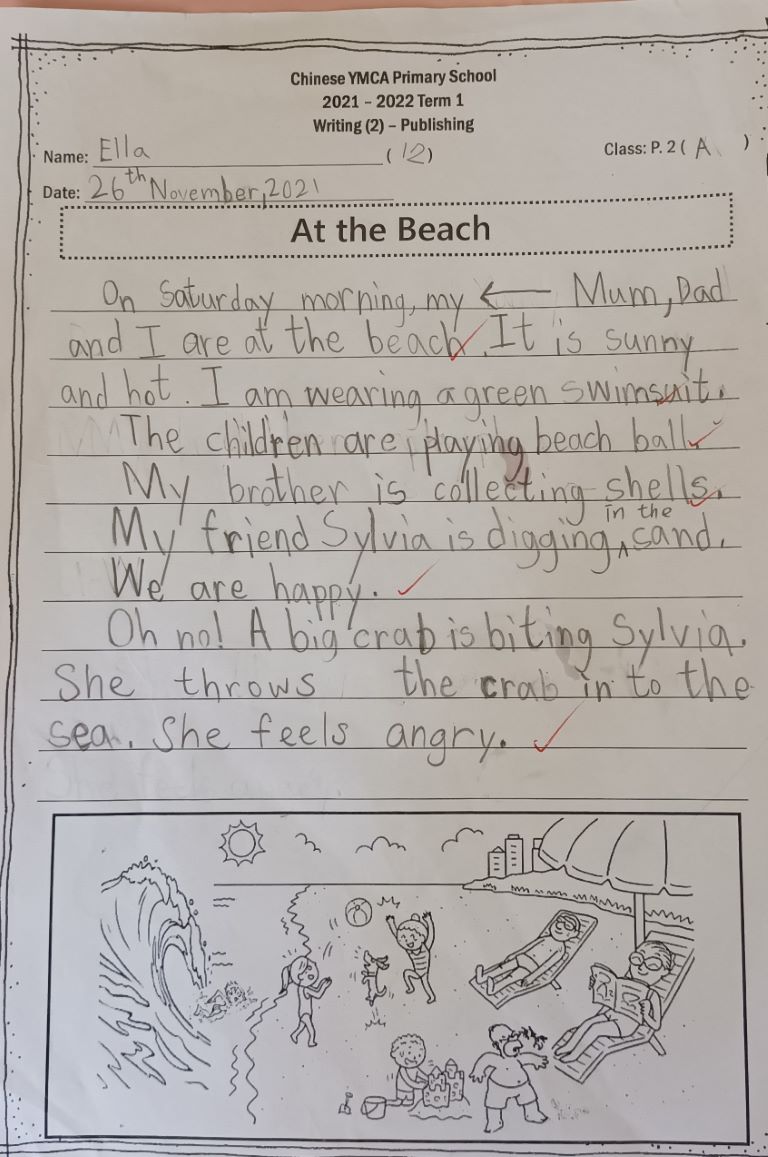 Chinese YMCA Primary School
2021 – 2022 Term 1
Writing (2) – Publishing
Name: Ella (12) Class: P. 2 ( A )
Date: 26th November, 2021
At the Beach
On Saturday morning, my ← Mum, Dad
and I are at the beach. It is sunny
and hot. I am wearing a green swimsuit.
The children are playing beach ball.
My brother is collecting shells.
in the
My friend Sylvia is digging ^ sand.
We are happy.
Oh no! A big crab is biting Sylvia.
She throws the crab in to the
sea. She feels angry.